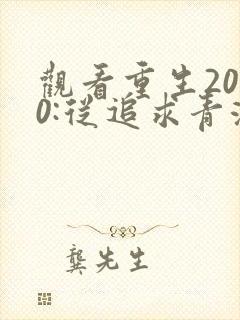 觀看重生20
0:從追求青
龔先生